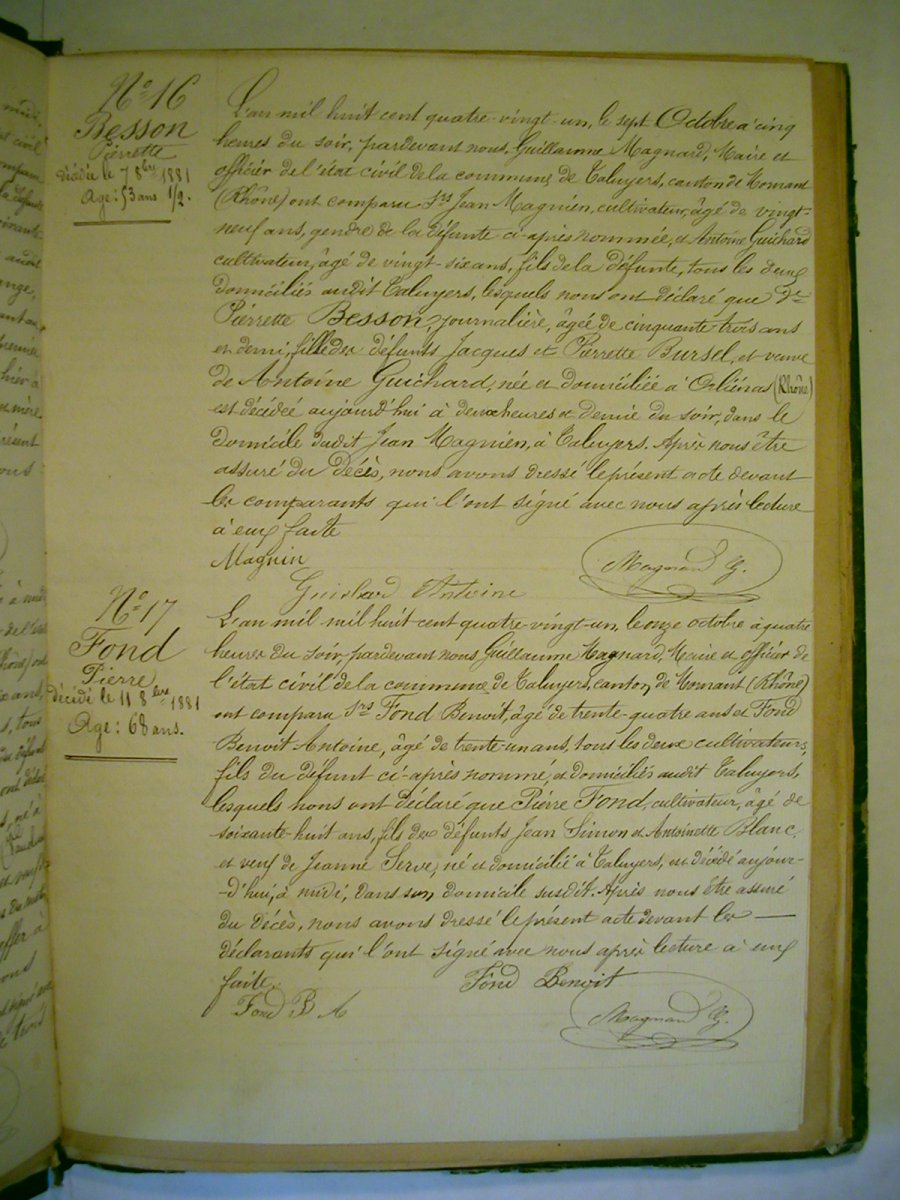 N° 16
Besson
Pierrette
décédée le 7 8bre 1881
Age: 53 ans 1/2.
L'an mil huit cent quatre-vingt-un, le sept Octobre à cinq
heures du soir, pardevant nous, Guillaume Magnard, Maire et
officier de l'état civil de la commune de Taluyers, canton de Mornant
(Rhône) ont comparu Srs Jean Magnien, cultivateur, âgé de vingt-
neuf ans, gendre de la défunte ci-après nommée, et Antoine Guichard
cultivateur, âgé de vingt-six ans, fils de la défunte, tous les deux
domiciliés audit Taluyers, lesquels nous ont déclaré que De
Pierrette Besson, journalière, âgée de cinquante trois ans
et demi, fille des défunts Jacques et Pierrette Bursel, et veuve
de Antoine Guichard, née et domiciliée à Orliénas (Rhône)
est décédée aujourd'hui à deux heures et demie du soir, dans le
domicile dudit Jean Magnien, à Taluyers. Après nous être
assuré du décès, nous avons dressé le présent acte devant
les comparants qui l'ont signé avec nous après lecture
à eux faite
Magnin
Magnard G.
Guichard Antoine
N° 17
Fond
Pierre
décédé le 11 8bre 1881
Age: 68 ans.
L'an mil mil huit cent quatre-vingt-un, le onze octobre à quatre
heures du soir, pardevant nous, Guillaume Magnard, Maire et officier de
l'état civil de la commune de Taluyers, canton de Mornant (Rhône)
ont comparu Srs Fond Benoit, âgé de trente-quatre ans et Fond
Benoit Antoine, âgé de trente-un ans, tous les deux cultivateurs,
fils du défunt ci-après nommé, et domiciliés audit Taluyers,
lesquels nous ont déclaré que Pierre Fond, cultivateur, âgé de
soixante-huit ans, fils des défunts Jean Simon et Antoinette Blanc,
et veuf de Jeanne Serve, né et domicilié à Taluyers, est décédé aujour-
-d'hui, à midi, dans son domicile susdit. Après nous être assuré
du décès, nous avons dressé le présent acte devant les
déclarants qui l'ont signé avec nous après lecture à eux
faite.
Fond Benoit
Fond B A
Magnard G.